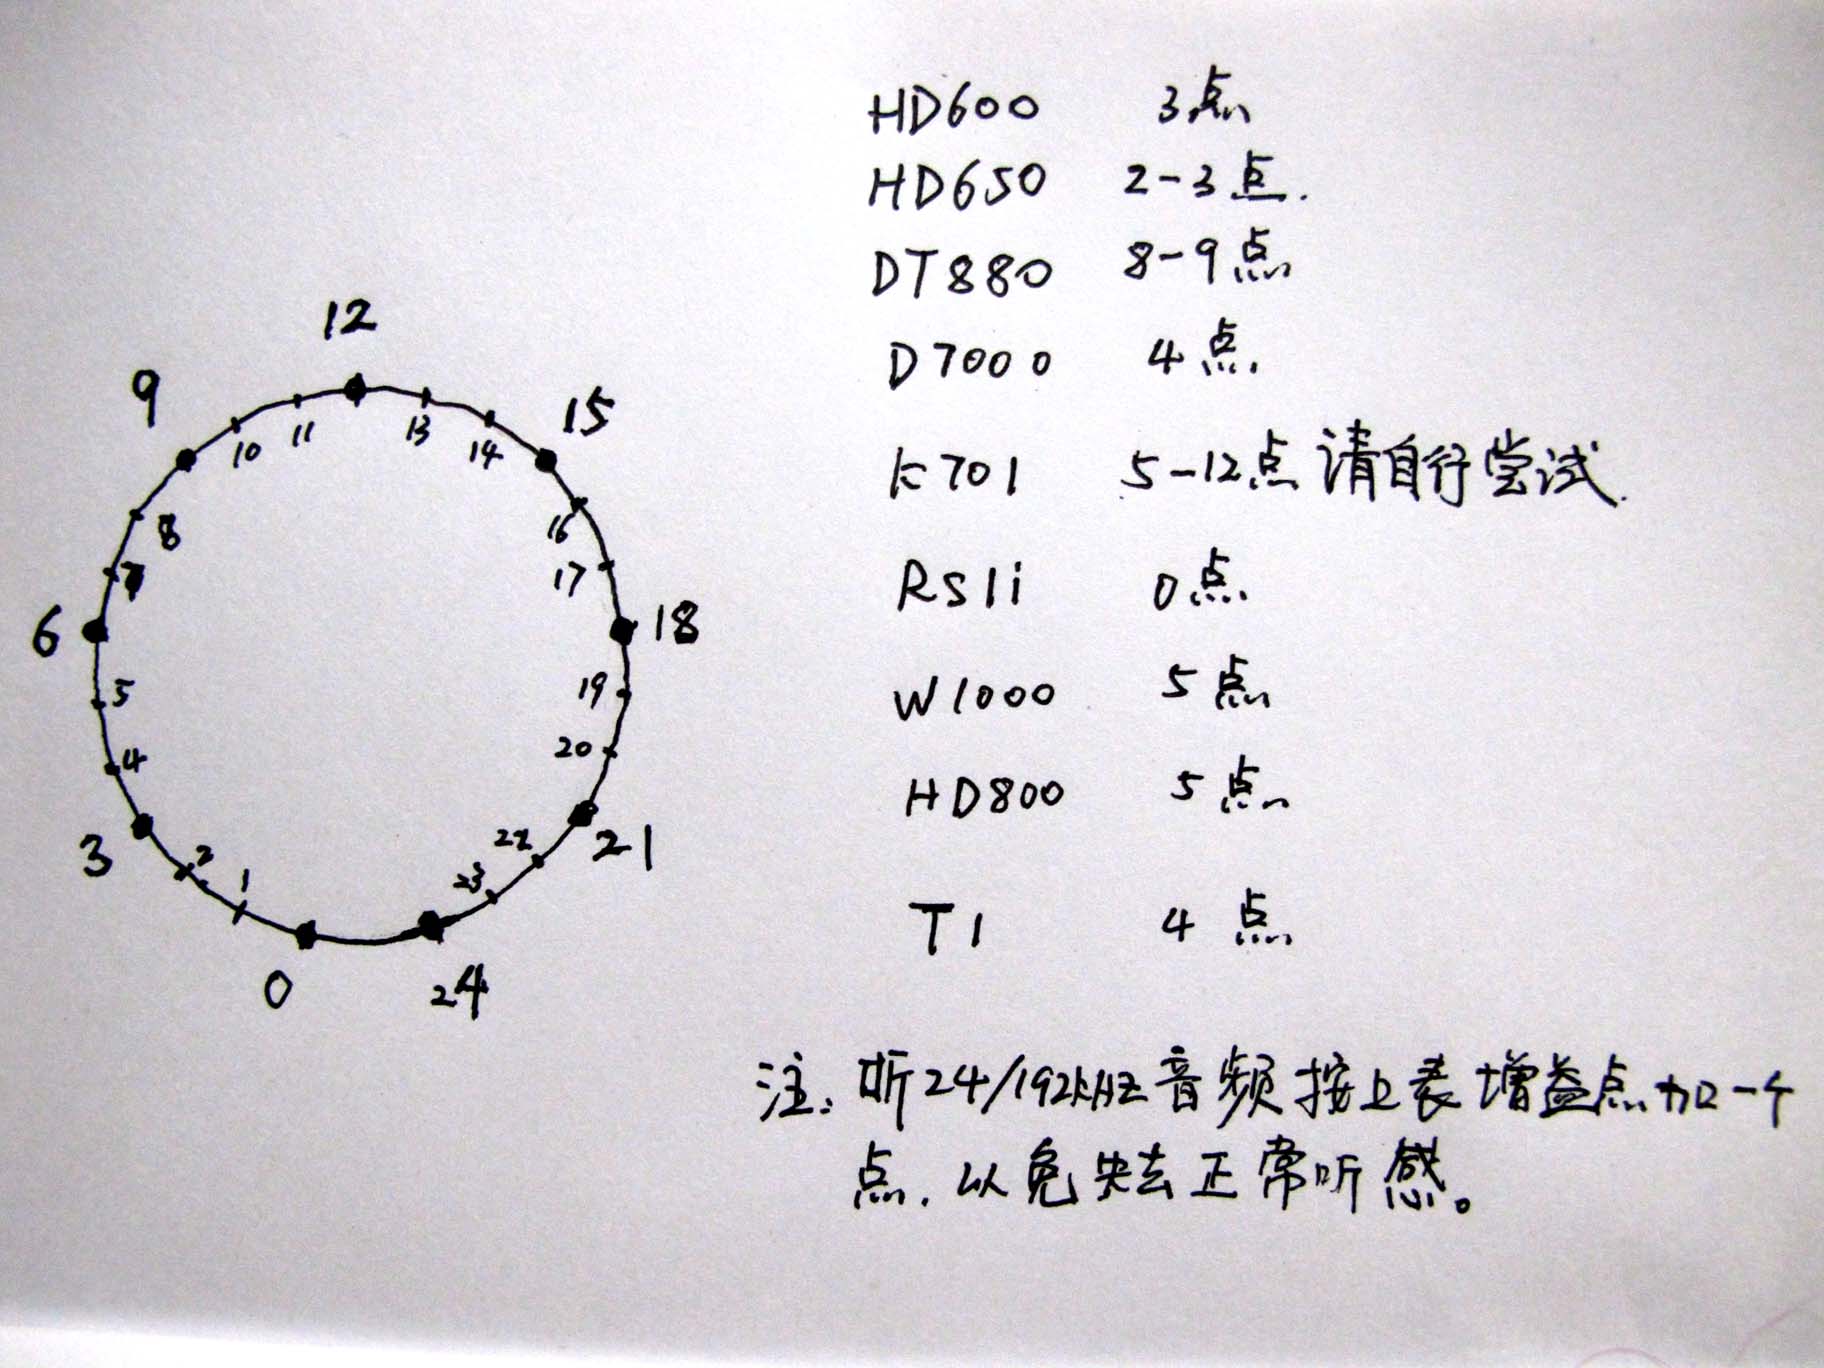 12
9
15
10
11
13
14
8
16
7
17
6
18
5
19
4
20
3
2
22
21
1
23
0
24
HD600 3点
HD650 2-3点.
DT880 8-9点
D7000 4点
K701 5-12点 请自行尝试.
RS1i 0点
W1000 5点
HD800 5点
T1 4点
注: 听24/192kHz音频按上表增益点加一个
点, 以免失去正常听感。